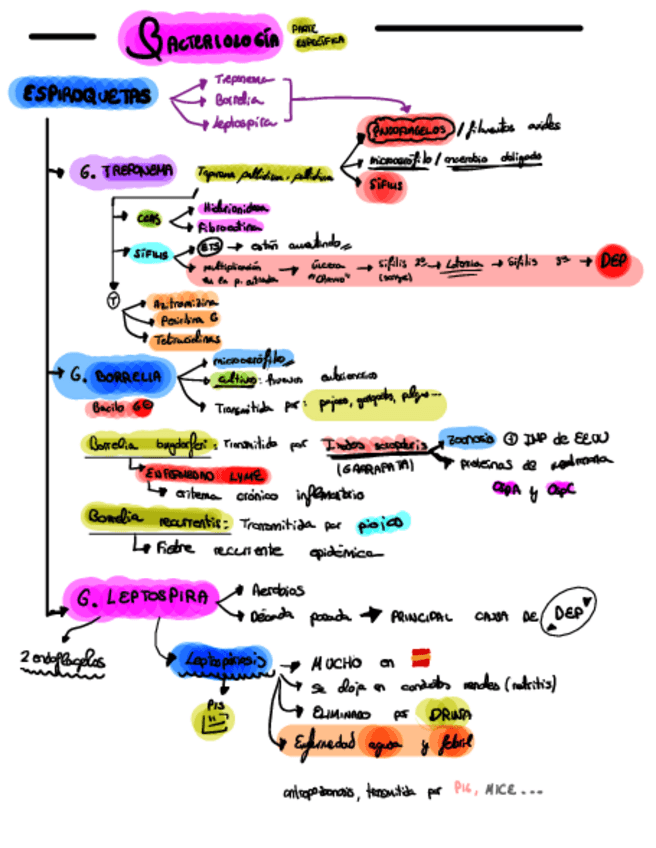 BACTERIOLOGÍA PARTE ESPECÍFICA
ESPIROQUETAS
Treponema
Borrelia
Leptospira
ENDOFLAGELOS / filamentos axiales
microaerófilo / anaerobio obligado
SÍFILIS
G. TREPONEMA
Treponema pallidum, pallidum
Hialuronidasa
Fibronectina
SÍFILIS
ETS → están aumentando
multiplicación en la p. → úlcera "Chancro" → Sífilis 2º (sangre) → Latencia → Sífilis 3º → DEP
T
Azitromicina
Penicilina G
Tetraciclinas
G. BORRELIA
Bacilo G⊖
microaerófilo
cultivo: huevos embrionados
Transmitida por: piojos, garrapatas, pulgas...
Borrelia burgdorferi: Transmitida por Ixodes scapularis
(GARRAPATA)
Zoonosis ⊕ IMP de EEUU
proteínas de membrana
OspA y OspC
ENFERMEDAD LYME
eritema crónico inflamatorio
Borrelia recurrentis: Transmitida por piojos
Fiebre recurrente epidémica
G. LEPTOSPIRA
Aerobios
Década pasada → PRINCIPAL CAUSA DE DEP
2 endoflagelos
Leptospirosis
PIS
MUCHO en
se aloja en conductos renales (nefritis)
ELIMINADO por ORINA
Enfermedad aguda y febril
antropozoonosis, transmitida por PIG, MICE...